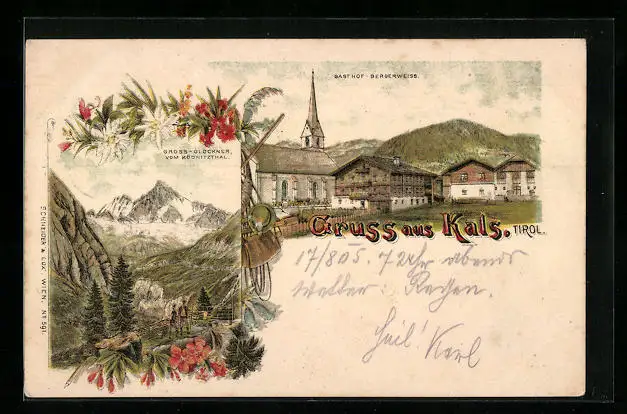 GASTHOF-BERGERWEISS.
GROSS-GLOCKNER,
VOM KÖDNITZTHAL.
Gruss aus Kals. TIROL.
17/8 05. 7 Uhr abends
Wetter: Regen.
Heil! Karl
SCHNEIDER & LUX, WIEN, No 591.